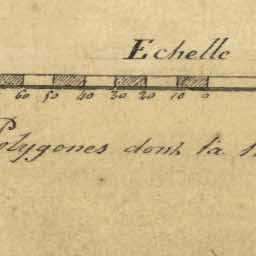 Echelle
60 50 40 30 20 10 0
Polygones dont la